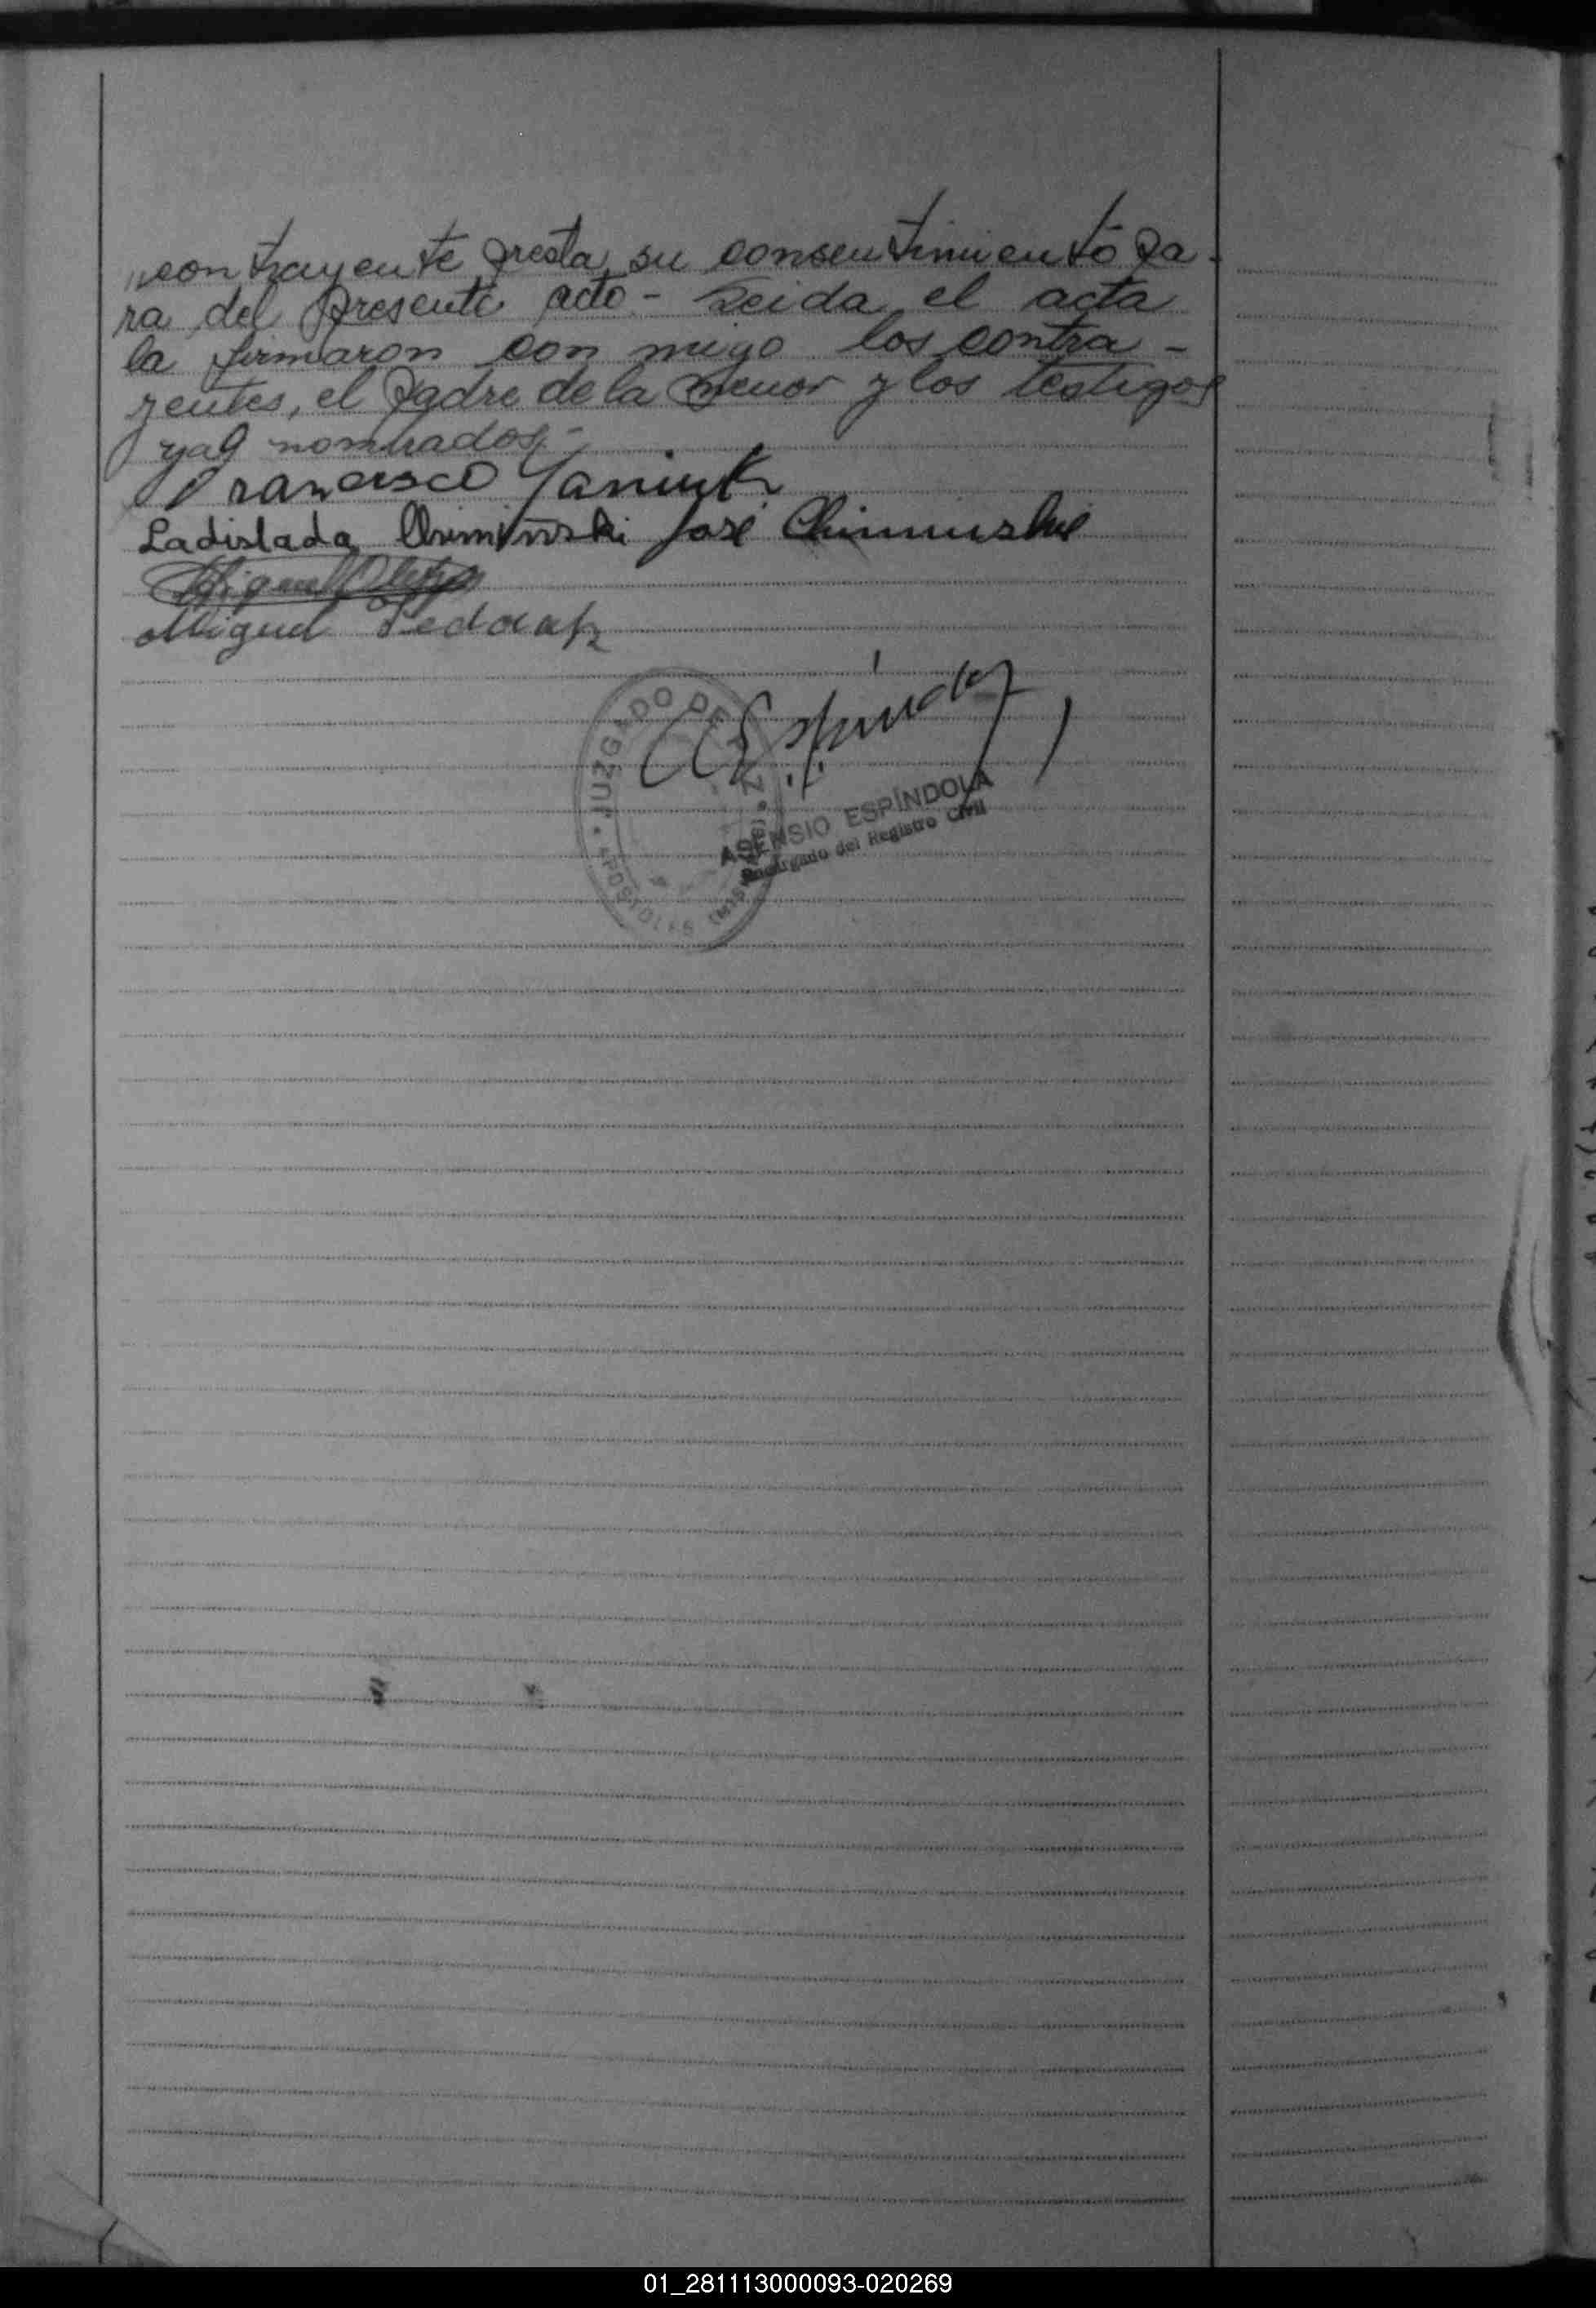 „contrayente presta su consentimiento pa-
ra del presente acto - Leida el acta
la firmaron con migo los contra-
yentes, el padre de la menor y los testigos
ya nombrados.-
Francisco Yaniuk
Ladislada Chimiński José Chimiński
Miguel
Miguel Fedacak
AEspíndola
JUZGADO DE PAZ
APOSTOLES (MISIONES)
ASENSIO ESPÍNDOLA
Encargado del Registro Civil
01_281113000093-020269